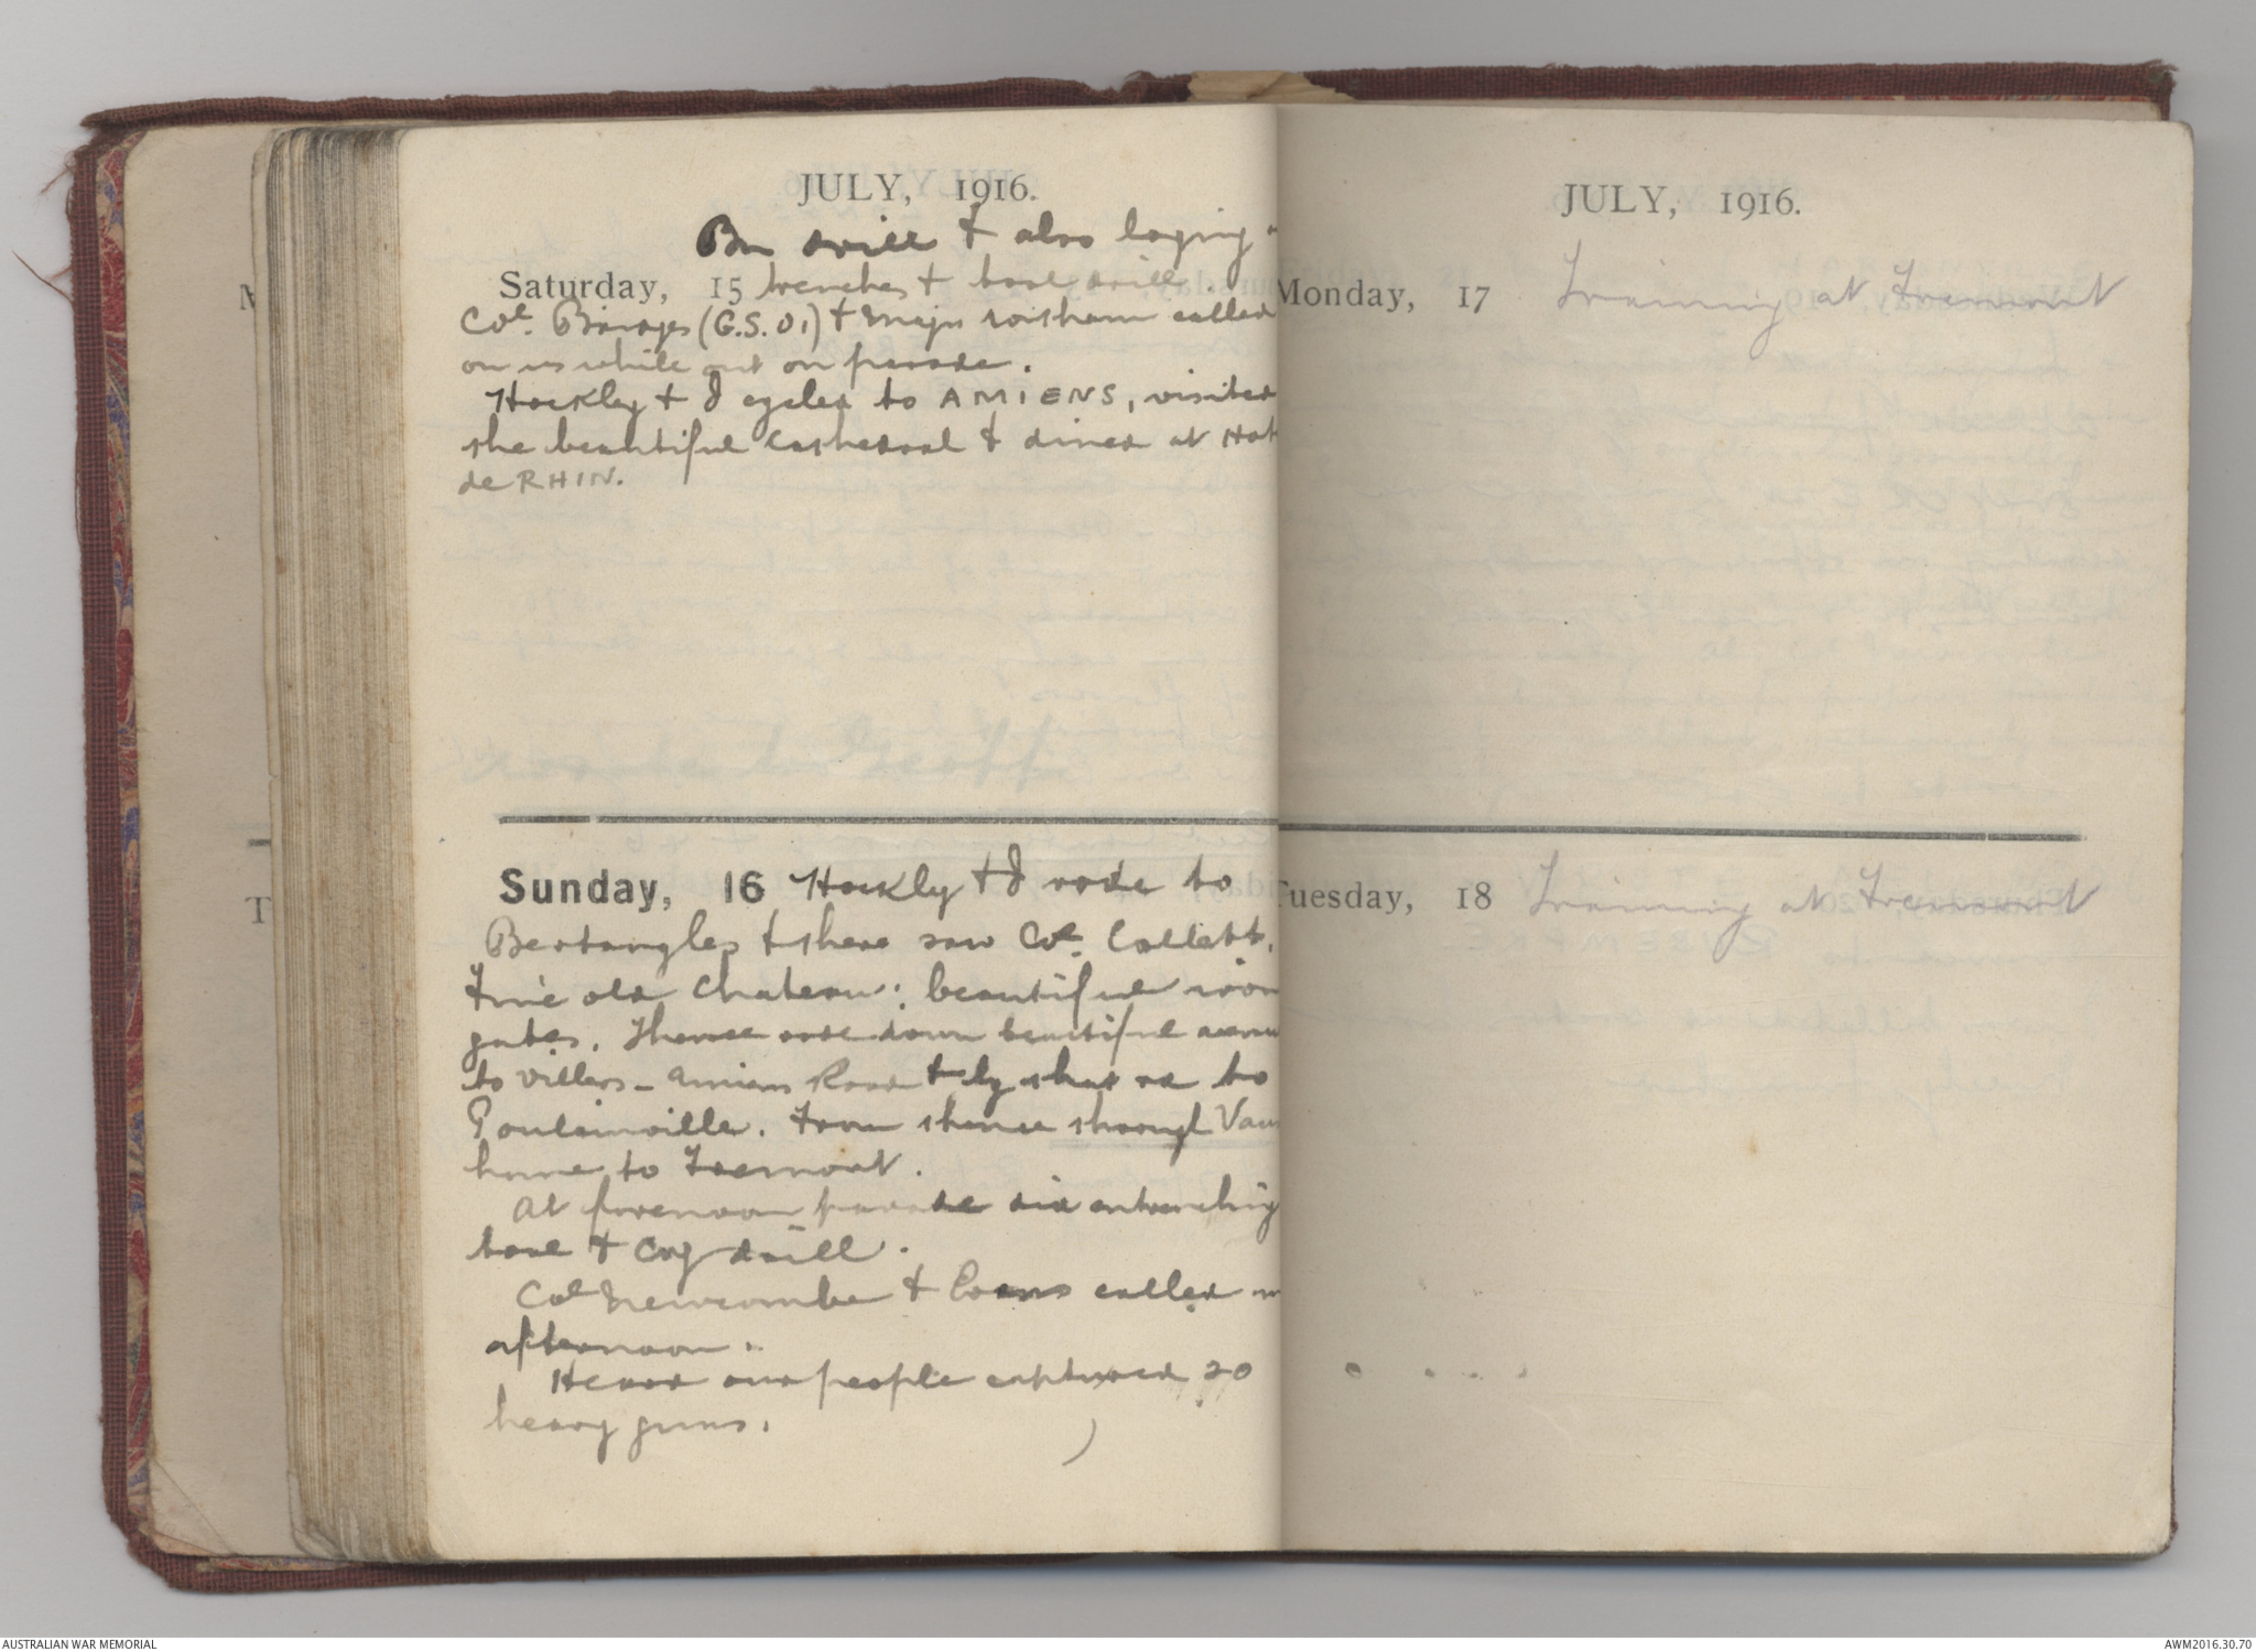 JULY, 1916.
Bn drill & also laying
Saturday, 15 trenches & tool drill.
Col. Bridges (G.S.O1) & Major called
on us while out on parade.
Hockley & I cycled to AMIENS, visited
the beautiful Cathedral & dined at Hot
de RHIN.
Sunday, 16 Hockly & I rode to
Bertangles & there saw Col. Collett.
Fine old chateau: beautiful iron
gates. Thence rode down beautiful avenu
to Villers - Amiens Road & by that rd to
Poulainville. From thence through Vau
home to Fremont.
At forenoon parade did entrenching
tool & Coy drill.
Col Newcombe & Evans called in
afternoon.
Heard our people captured 20
heavy guns.
JULY, 1916.
Monday, 17 Training at Fremont
Tuesday, 18 Training at Fremont
AUSTRALIAN WAR MEMORIAL
AWM2016.30.70